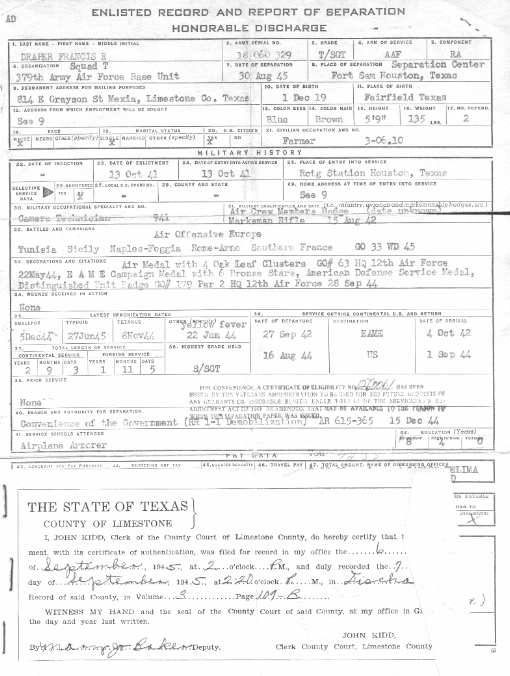 AD
ENLISTED RECORD AND REPORT OF SEPARATION
HONORABLE DISCHARGE
1. LAST NAME - FIRST NAME - MIDDLE INITIAL 2. ARMY SERIAL NO. 3. GRADE 4. ARM OR SERVICE 5. COMPONENT
DRAPER FRANCIS E 18 060 329 T/SGT AAF RA
6. ORGANIZATION 7. DATE OF SEPARATION 8. PLACE OF SEPARATION
Squad T Separation Center
379th Army Air Force Base Unit 30 Aug 45 Fort Sam Houston, Texas
9. PERMANENT ADDRESS FOR MAILING PURPOSES 10. DATE OF BIRTH 11. PLACE OF BIRTH
814 E Grayson St Mexia, Limestone Co, Texas 1 Dec 19 Fairfield Texas
12. ADDRESS FROM WHICH EMPLOYMENT WILL BE SOUGHT 13. COLOR EYES 14. COLOR HAIR 15. HEIGHT 16. WEIGHT 17. NO. DEPEND.
See 9 Blue Brown 5'9" 135 LBS. 2
18. RACE 19. MARITAL STATUS 20. U.S. CITIZEN 21. CIVILIAN OCCUPATION AND NO.
WHITE NEGRO OTHER (specify) SINGLE MARRIED OTHER (specify) YES NO
X X X Farmer 3-06.10
MILITARY HISTORY
22. DATE OF INDUCTION 23. DATE OF ENLISTMENT 24. DATE OF ENTRY INTO ACTIVE SERVICE 25. PLACE OF ENTRY INTO SERVICE
- 13 Oct 41 13 Oct 41 Rctg Station Houston, Texas
SELECTIVE SERVICE DATA 26. REGISTERED 27. LOCAL S.S. BOARD NO. 28. COUNTY AND STATE 29. HOME ADDRESS AT TIME OF ENTRY INTO SERVICE
See 9
30. MILITARY OCCUPATIONAL SPECIALTY AND NO. 31. MILITARY QUALIFICATION AND DATE (i.e., infantry, aviation and marksmanship badges, etc.)
Air Crew Members Badge (date unknown)
Camera Technician 941 Marksman Rifle 15 Aug 42
32. BATTLES AND CAMPAIGNS
Air Offensive Europe
Tunisia Sicily Naples-Foggia Rome-Arno Southern France GO 33 WD 45
33. DECORATIONS AND CITATIONS Air Medal with 4 Oak Leaf Clusters GO# 63 Hq 12th Air Force
22May44, E A M E Campaign Medal with 6 Bronze Stars, American Defense Service Medal,
Distinguished Unit Badge GO# 179 Par 2 Hq 12th Air Force 28 Sep 44
34. WOUNDS RECEIVED IN ACTION
None
35. LATEST IMMUNIZATION DATES 36. SERVICE OUTSIDE CONTINENTAL U.S. AND RETURN
SMALLPOX TYPHOID TETANUS OTHER (specify) DATE OF DEPARTURE DESTINATION DATE OF ARRIVAL
yellow fever
5Dec44 27Jun45 8Nov44 22 Jun 44 27 Sep 42 EAME 4 Oct 42
37. TOTAL LENGTH OF SERVICE 38. HIGHEST GRADE HELD
CONTINENTAL SERVICE FOREIGN SERVICE 16 Aug 44 US 1 Sep 44
YEARS MONTHS DAYS YEARS MONTHS DAYS
2 9 3 1 11 5 S/SGT
39. PRIOR SERVICE
FOR CONVENIENCE A CERTIFICATE OF ELIGIBILITY NO. HAS BEEN
ISSUED BY THE VETERANS ADMINISTRATION TO BE USED FOR THE FUTURE REQUESTS OF
None
40. REASON AND AUTHORITY FOR SEPARATION
Convenience of the Government (RR 1-1 Demobilization) AR 615-365 15 Dec 44
41. SERVICE SCHOOLS ATTENDED 42. EDUCATION (Years)
Airplane Armorer 8 4 0
PAY DATA
43. LONGEVITY FOR PAY PURPOSES 44. MUSTERING OUT PAY 45. SOLDIER DEPOSITS 46. TRAVEL PAY 47. TOTAL AMOUNT, NAME OF DISBURSING OFFICER
THE STATE OF TEXAS
COUNTY OF LIMESTONE
I, JOHN KIDD, Clerk of the County Court of Limestone County, do hereby certify that
ment, with its certificate of authentication, was filed for record in my office the 6
of September, 1945, at 2 o'clock P.M., and duly recorded the 7
day of September, 1945, at 2:20 o'clock P. M., in Discha
Record of said County, in Volume 3 Page 109-B
WITNESS MY HAND and the seal of the County Court of said County, at my office in G
the day and year last written.
JOHN KIDD,
By Deputy. Clerk County Court, Limestone County